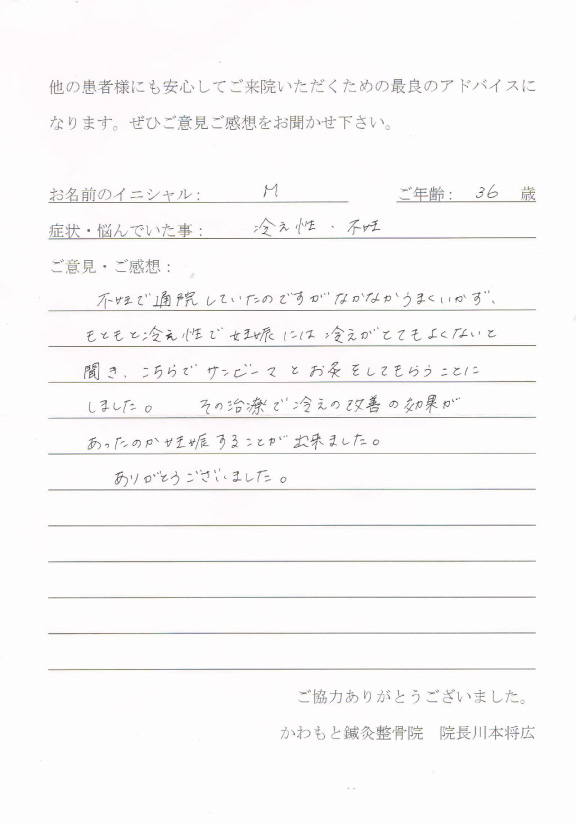 他の患者様にも安心してご来院いただくための最良のアドバイスに
なります。ぜひご意見ご感想をお聞かせ下さい。
お名前のイニシャル： M ご年齢： 36 歳
症状・悩んでいた事： 冷え性・不妊
ご意見・ご感想：
不妊で通院していたのですがなかなかうまくいかず、
もともと冷え性で妊娠には冷えがとてもよくないと
聞き、こちらでサンビーマとお灸をしてもらうことに
しました。 その治療で冷えの改善の効果が
あったのか妊娠することが出来ました。
ありがとうございました。
ご協力ありがとうございました。
かわもと鍼灸整骨院 院長川本将広